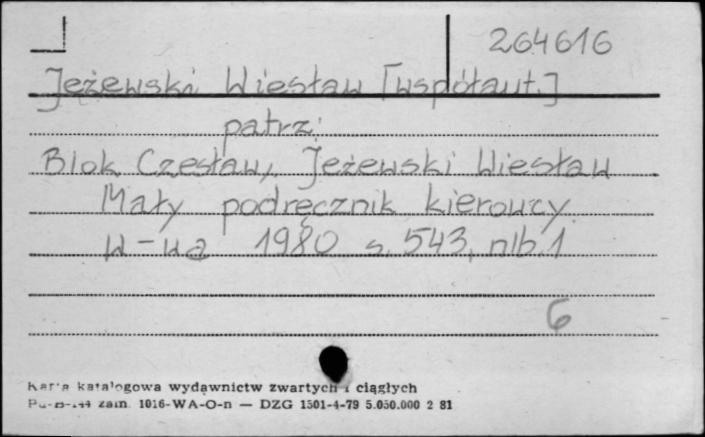 264616
Jeżewski Wiesław [współaut.]
patrz:
Blok Czesław, Jeżewski Wiesław
Mały podręcznik kierowcy.
W-wa 1980 s. 543, nlb. 1
6
Karta katalogowa wydawnictw zwartych i ciągłych
zam. 1016-WA-O-n — DZG 1501-4-79 5.050.000 2 81